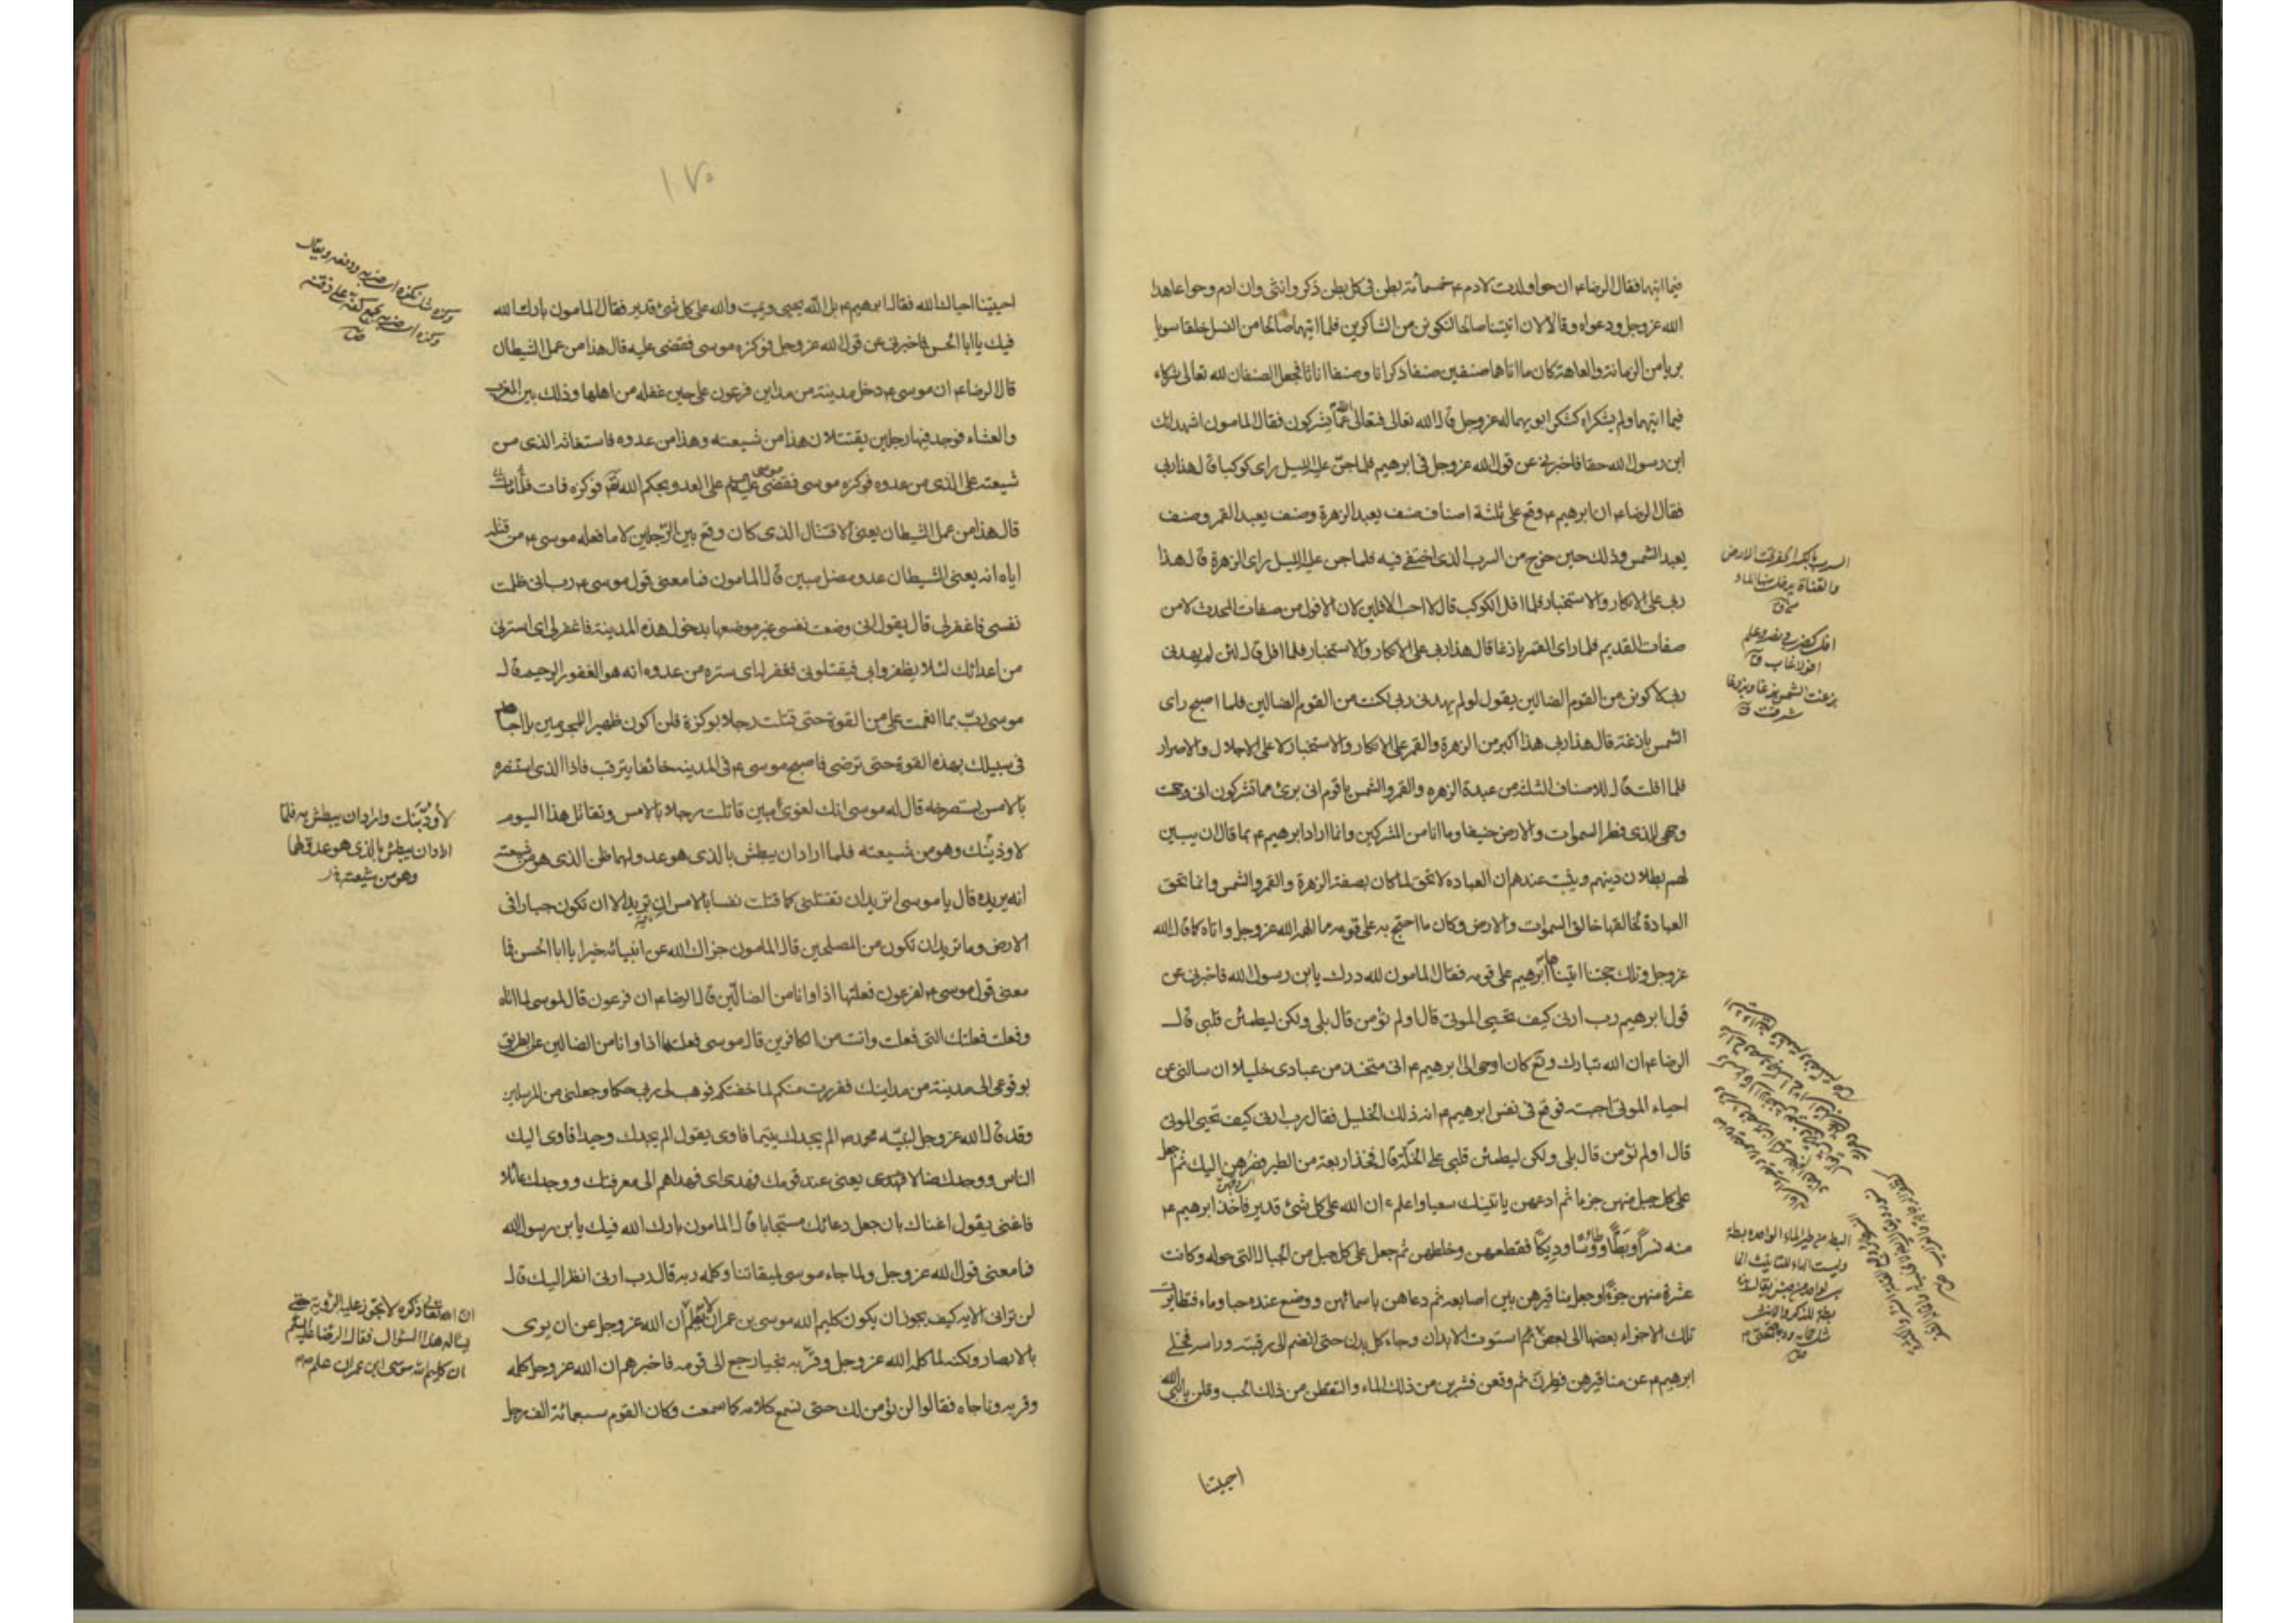 فيما ايتهما فقال الرضا ء ان حوا ولدت لادم ء خمسمائة بطن فى كل بطن ذكر وانثى وان ادم وحوا عاهدا
الله عز وجل ودعواه وقالا لان اتيتنا صالحا لنكونن من الشاكرين فلما اتيهما صالحا من النسل خلقا سويا
بريا من الزمانة والعاهة كان ما اتاهما صنفين صنفا ذكرانا وصنفا اناثا فجعل الصنفان لله تعالى شركاء
فيما ايتهما ولم يشكراه كشكر ابويهما له عز وجل قال الله تعالى فتعالى الله عما يشركون فقال المامون اشهد انك
ابن رسول الله حقا فاخبرنى عن قول الله عز وجل فى ابرهيم فلما جن عليه الليل راى كوكبا قال هذا ربى
فقال الرضا ء ان ابرهيم ء وقع على ثلثة اصناف صنف يعبد الزهرة وصنف يعبد القمر وصنف
يعبد الشمس وذلك حين خرج من السرب الذى اختفى فيه فلما جن عليه الليل راى الزهرة قال هذا
ربى على الانكار والاستخبار فلما افل الكوكب قال لا احب الافلين لان الافول من صفات المحدث لا من
صفات القديم فلما راى القمر بازغا قال هذا ربى على الانكار والاستخبار فلما افل قال لئن لم يهدنى
ربى لاكونن من القوم الضالين يقول لو لم يهدنى ربى لكنت من القوم الضالين فلما اصبح راى
الشمس بازغة قال هذا ربى هذا اكبر من الزهرة والقمر على الانكار والاستخبار لا على الاخبار والاقرار
فلما افلت قال للاصناف الثلثة من عبدة الزهره والقمر والشمس يا قوم انى برئ مما تشركون انى وجهت
وجهى للذى فطر السموات والارض حنيفا وما انا من المشركين وانما اراد ابرهيم ء بما قال ان يبين
لهم بطلان دينهم ويثبت عندهم ان العباده لا تحق لما كان بصفة الزهرة والقمر والشمس وانما تحق
العبادة لخالقها خالق السموات والارض وكان ما احتج به على قومه مما الهمه الله عز وجل واتاه كما قال الله
عز وجل وتلك حجتنا اتيناها ابرهيم على قومه فقال المامون لله درك يابن رسول الله فاخبرنى عن
قول ابرهيم رب ارنى كيف تحيى الموتى قال اولم تؤمن قال بلى ولكن ليطمئن قلبى قال
الرضا ء ان الله تبارك وتع كان اوحى الى ابرهيم ء انى متخذ من عبادى خليلا ان سالنى عن
احياء الموتى اجبته فوقع فى نفس ابرهيم ء انه ذلك الخليل فقال رب ارنى كيف تحيى الموتى
قال اولم تؤمن قال بلى ولكن ليطمئن قلبى على الخلة قال فخذ اربعة من الطير فصرهن اليك ثم اجعل
على كل جبل منهن جزءا ثم ادعهن ياتينك سعيا واعلم ان الله على كل شئ قدير فاخذ ابرهيم ء
منه نسرا وبطا وطاوسا وديكا فقطعهن وخلطهن ثم جعل على كل جبل من الجبال التى حوله وكانت
عشرة منهن جزءا وجعل مناقيرهن بين اصابعه ثم دعاهن باسمائهن ووضع عنده حبا وماء فتطايرت
تلك الاجزاء بعضها الى بعض حتى استوت الابدان وجاء كل بدن حتى انضم الى رقبته وراسه فخلى
ابرهيم ء عن مناقيرهن فطرن ثم وقعن فشربن من ذلك الماء والتقطن من ذلك الحب وقلن يا نبى الله
احييتنا
السرب بالتحريك الحفر تحت الارض
والقناة يدخل منها الماء
افل كضرب ونصر وعلم
افولا غاب ق
بزغت الشمس بزغا وبزوغا
شرقت ق
البط من طير الماء الواحدة بطة
وليست الهاء للتانيث انما
هى لواحد من جنس يقال هذه
بطة للذكر والانثى
١٧٠
احييتنا احياك الله فقال ابرهيم ء بل الله يحيى ويميت والله على كل شئ قدير فقال المامون بارك الله
فيك يا ابا الحسن فاخبرنى عن قول الله عز وجل فوكزه موسى فقضى عليه قال هذا من عمل الشيطان
قال الرضا ء ان موسى ء دخل مدينة من مداين فرعون على حين غفلة من اهلها وذلك بين المغرب
والعشاء فوجد فيها رجلين يقتتلان هذا من شيعته وهذا من عدوه فاستغاثه الذى من
شيعته على الذى من عدوه فوكزه موسى فقضى موسى عليه على العدو بحكم الله تع فوكزه فمات
قال هذا من عمل الشيطان يعنى الاقتتال الذى كان وقع بين الرجلين لا ما فعله موسى ء من قتله
اياه انه يعنى الشيطان عدو مضل مبين قال المامون فما معنى قول موسى ء رب انى ظلمت
نفسى فاغفر لى قال يقول انى وضعت نفسى غير موضعها بدخول هذه المدينة فاغفر لى اى استرنى
من اعدائك لئلا يظفروا بى فيقتلونى فغفر له اى ستره من عدوه انه هو الغفور الرحيم قال
موسى رب بما انعمت على من القوة حتى قتلت رجلا بوكزة فلن اكون ظهيرا للمجرمين بل اجاهد
فى سبيلك بهذه القوة حتى ترضى فاصبح موسى ء فى المدينه خائفا يترقب فاذا الذى استنصره
بالامس يستصرخه قال له موسى انك لغوى مبين قاتلت رجلا بالامس وتقاتل هذا اليوم
لاوذينك وهو من شيعته فلما اراد ان يبطش بالذى هو عدو لهما ظن الذى هو من شيعته
انه يريده قال يا موسى اتريد ان تقتلنى كما قتلت نفسا بالامس ان تريد الا ان تكون جبارا فى
الارض وما تريد ان تكون من المصلحين قال المامون جزاك الله عن انبيائه خيرا يا ابا الحسن فما
معنى قول موسى ء لفرعون فعلتها اذا وانا من الضالين قال الرضا ء ان فرعون قال لموسى لما اتاه
وفعلت فعلتك التى فعلت وانت من الكافرين قال موسى فعلتها اذا وانا من الضالين عن الطريق
بوقوعى الى مدينة من مداينك ففررت منكم لما خفتكم فوهب لى ربى حكما وجعلنى من المرسلين
وقد قال الله عز وجل لنبيه محمد ص الم يجدك يتيما فاوى يقول الم يجدك وحيدا فاوى اليك
الناس ووجدك ضالا فهدى يعنى عند قومك فهدى اى فهداهم الى معرفتك ووجدك عائلا
فاغنى يقول اغناك بان جعل دعائك مستجابا قال المامون بارك الله فيك يا بن رسول الله
فما معنى قول الله عز وجل ولما جاء موسى لميقاتنا وكلمه ربه قال رب ارنى انظر اليك قال
لن ترانى الايه كيف يجوز ان يكون كليم الله موسى بن عمران لا يعلم ان الله عز وجل عن ان يرى
بالابصار ولكنه لما كلمه الله عز وجل وقربه نجيا رجع الى قومه فاخبرهم ان الله عز وجل كلمه
وقربه وناجاه فقالوا لن نؤمن لك حتى نسمع كلامه كما سمعت وكان القوم سبعمائة الف رجل
وكزه مثل نكزه اى ضربه ودفعه ويقال
وكزه اى ضربه بجمع كفه على ذقنه
لاؤدبنك واراد ان يبطش به فلما
اراد ان يبطش بالذى هو عدو لهما
وهو من شيعته
ان الله تعالى ذكره لا تجوز عليه الرؤية حتى
يساله هذا السؤال فقال الرضا عليه السلم
ان كليم الله موسى ابن عمران علم